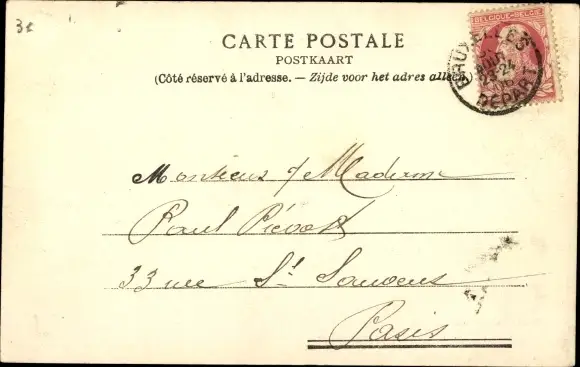 3e
BELGIQUE-BELGIË
CARTE POSTALE
POSTKAART
(Côté réservé à l'adresse. — Zijde voor het adres alleen)
BRUXELLES
AOUT
DEPART
Monsieur & Madame
Paul
33 rue St
Paris